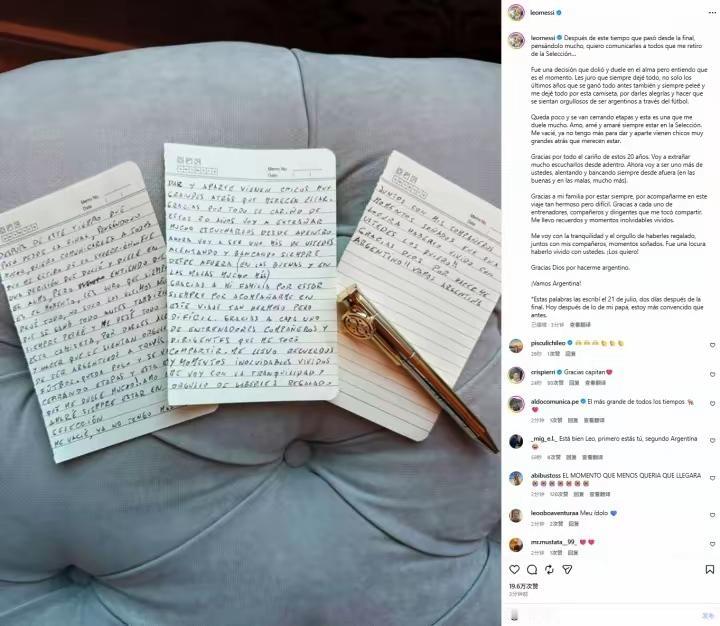 Memo No.
Date
DESPUÉS DE ESTE TIEMPO QUE
PASÓ DESDE LA FINAL, PENSÁNDOLO
MUCHO, QUIERO COMUNICARLES A TODOS
QUE ME RETIRO DE LA SELECCIÓN. FUE
UNA DECISIÓN QUE DOLIÓ Y DUELE EN
EL ALMA, PERO ENTIENDO QUE
ES EL MOMENTO. LES JURO QUE SIEMPRE
DEJÉ TODO, NO SOLO LOS ÚLTIMOS AÑOS
QUE SE GANÓ TODO ANTES TAMBIÉN
SIEMPRE PELEÉ Y ME DEJÉ TODO POR
ESTA CAMISETA, POR DARLES ALEGRÍAS
Y HACER QUE SE SIENTAN ORGULLOSOS
DE SER ARGENTINOS A TRAVÉS DEL
FÚTBOL. QUEDA POCO Y SE VAN
CERRANDO ETAPAS Y ESTA ES UNA
QUE ME DUELE MUCHO. AMO, AMÉ
AMARÉ SIEMPRE ESTAR EN LA
SELECCIÓN
ME VACIÉ, YA NO TENGO MÁS
Memo No.
Date
DAR Y APARTE VIENEN CHICOS MUY
GRANDES ATRÁS QUE MERECEN ESTAR.
GRACIAS POR TODO EL CARIÑO DE
ESTOS 20 AÑOS. VOY A EXTRAÑAR
MUCHO ESCUCHARLOS DESDE ADENTRO.
AHORA VOY A SER UNO MÁS DE USTEDES
ALENTANDO Y BANCANDO SIEMPRE
DESDE AFUERA (EN LAS BUENAS Y EN
LAS MALAS MUCHO MÁS)
GRACIAS A MI FAMILIA POR ESTAR
SIEMPRE POR ACOMPAÑARME EN
ESTE VIAJE TAN HERMOSO PERO
DIFÍCIL. GRACIAS A CADA UNO
DE ENTRENADORES COMPAÑEROS Y
DIRIGENTES QUE ME TOCÓ
COMPARTIR. ME LLEVO RECUERDOS
Y MOMENTOS INOLVIDABLES VIVIDOS
ME VOY CON LA TRANQUILIDAD Y
ORGULLO DE HABERLES REGALADO,
Memo No.
Date
JUNTOS CON MIS COMPAÑEROS
MOMENTOS SOÑADOS. FUE UNA
LOCURA HABERLO VIVIDO CON
USTEDES. LOS QUIERO!!
GRACIAS DIOS POR HACERME
ARGENTINO!! VAMOS ARGENTINA
leomessi
leomessi Después de este tiempo que pasó desde la final,
pensándolo mucho, quiero comunicarles a todos que me retiro
de la Selección...
Fue una decisión que dolió y duele en el alma pero entiendo que
es el momento. Les juro que siempre dejé todo, no solo los
últimos años que se ganó todo antes también y siempre peleé y
me dejé todo por esta camiseta, por darles alegrías y hacer que
se sientan orgullosos de ser argentinos a través del fútbol.
Queda poco y se van cerrando etapas y esta es una que me
duele mucho. Amo, amé y amaré siempre estar en la Selección.
Me vacié, ya no tengo más para dar y aparte vienen chicos muy
grandes atrás que merecen estar.
Gracias por todo el cariño de estos 20 años. Voy a extrañar
mucho escucharlos desde adentro. Ahora voy a ser uno más de
ustedes, alentando y bancando siempre desde afuera (en las
buenas y en las malas, mucho más).
Gracias a mi familia por estar siempre, por acompañarme en este
viaje tan hermoso pero difícil. Gracias a cada uno de
entrenadores, compañeros y dirigentes que me tocó compartir.
Me llevo recuerdos y momentos inolvidables vividos.
Me voy con la tranquilidad y el orgullo de haberles regalado,
juntos con mis compañeros, momentos soñados. Fue una locura
haberlo vivido con ustedes. ¡Los quiero!
Gracias Dios por hacerme argentino.
¡Vamos Argentina!
*Estas palabras las escribí el 21 de julio, dos días después de la
final. Hoy después de lo de mi papá, estoy más convencido que
antes.
已编辑 3分钟 查看翻译
pisculichileo 🙌🙌🙌👏👏👏
26秒 1次赞 回复
crispieri Gracias capitan❤️
24秒 50次赞 回复 查看翻译
aldocomunica.pe El más grande de todos los tiempos 🐐
❤️
2分钟 1次赞 回复 查看翻译
_mig_e.l_ Está bien Leo, primero estás tú, segundo Argentina
😭
59秒 8次赞 回复 查看翻译
abibustoss EL MOMENTO QUE MENOS QUERIA QUE LLEGARA
2分钟 120次赞 回复 查看翻译
leooboaventuraa Meu ídolo 💙
2分钟 2次赞 回复
mr.mustata__99_ ❤️❤️
2分钟 1次赞 回复
19.6万次赞
3分钟前
发布